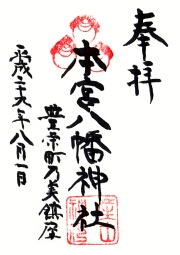 奉拝
本宮八幡神社
豊栄町乃美鎮座
平成二十九年八月一日